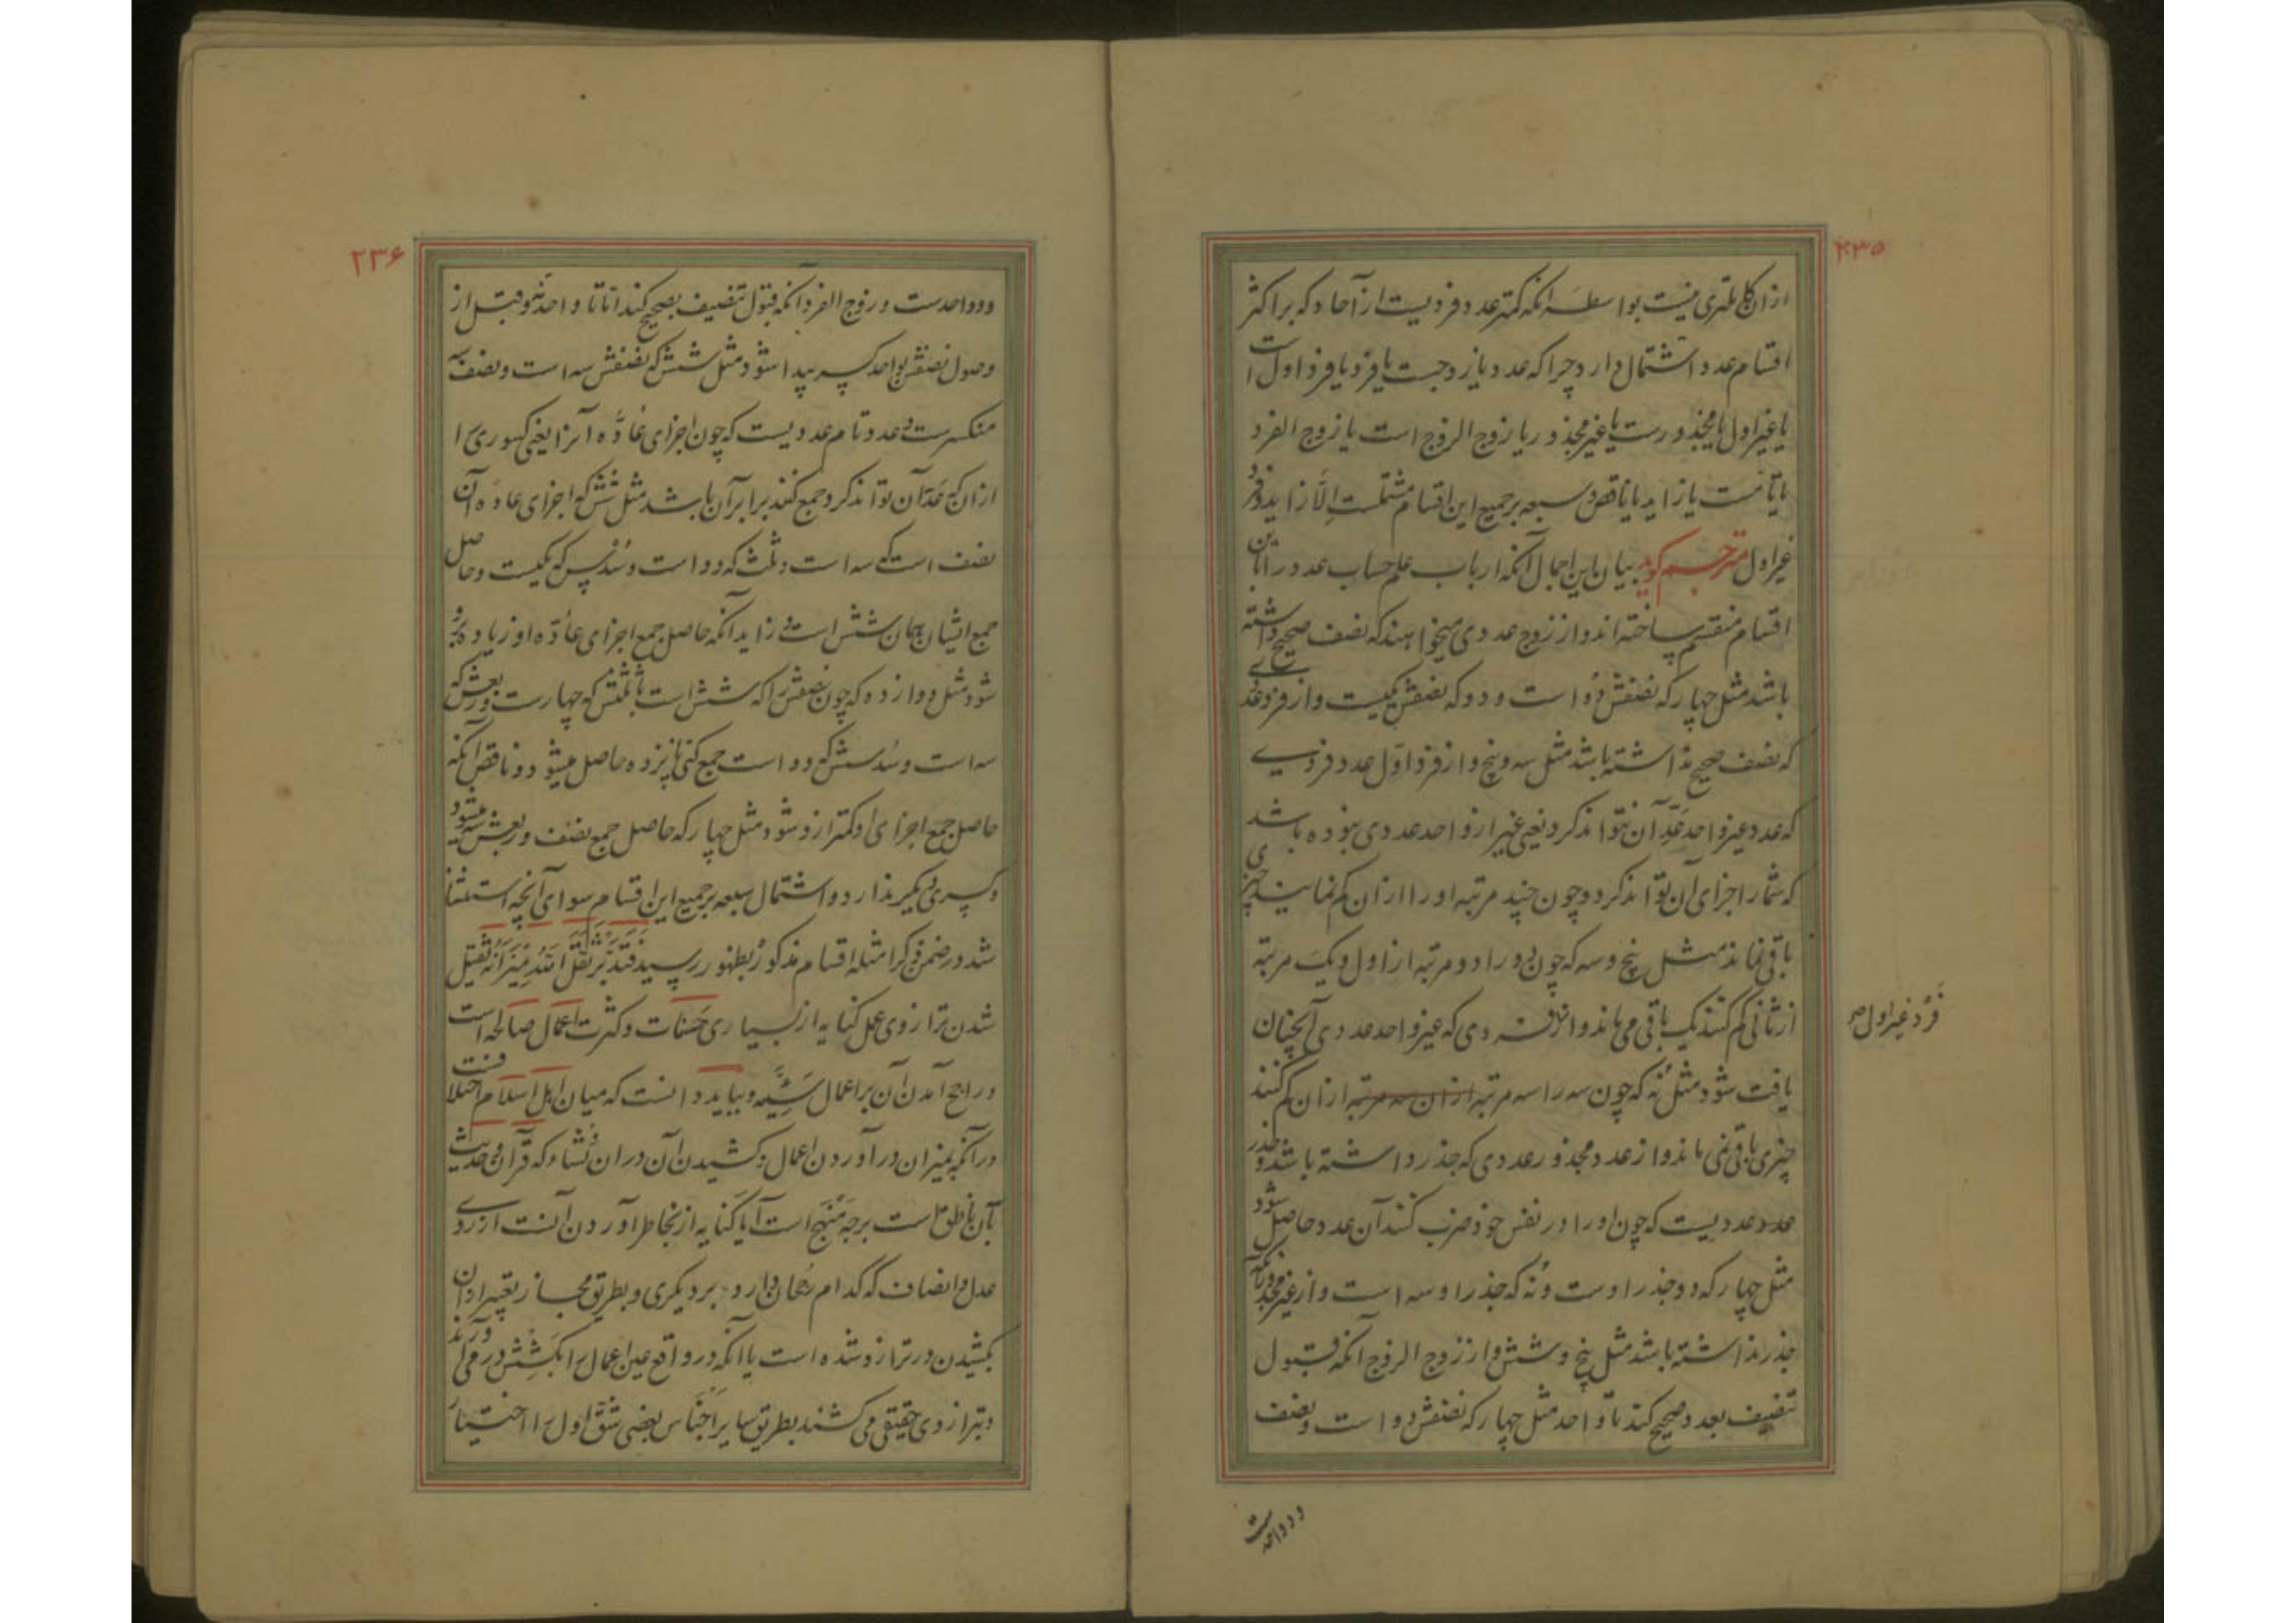 ۲۳۵
ازان کلی تری نیست بواسطه انکه کمتر عدد فردیست از آحاد که بر اکثر
اقسام عدد اشتمال دارد چرا که عدد یا زوجست یا فرد یا فرد اول است
یا غیر اول یا مجذورست یا غیر مجذور یا زوج الزوج است یا زوج الفرد
یا تامست یا زاید یا ناقص و سبعه بر جمیع این اقسام مشتملست الّا زاید و فرد
غیر اول مترجم کوید بیان این اجمال آنکه ارباب علم حساب عدد را باین
اقسام منقسم ساخته اند و از زوج عددی میخواهند که نصف صحیح داشته
باشد مثل چهار که نصفش دو است و دو که نصفش یکیست و از فرد عددی
که نصف صحیح نداشته باشد مثل سه و پنج و از فرد اوّل عدد فردی
که عدد غیر واحد عَدِّ آن نتواند کرد یعنی غیر از واحد عددی نبوده باشد
که شمار اجزای آن تواند کرد و چون چند مرتبه او را ازان کم نمایند چیزی
باقی نماند مثل پنج و سه که چون دو را دو مرتبه از اول و یک مرتبه
از ثانی کم کنند یک باقی می ماند و الا فردی که غیر واحد عددی آنچنان
فرد غیر اول صح
یافت شود مثل نُه که چون سه را سه مرتبه ازان سه مرتبه ازان کم کنند
چیزی باقی نمی ماند و از عدد مجذور عددی که جذر داشته باشد و جذر
عدد عددیست که چون او را در نفس خود ضرب کنند آن عدد حاصل شود
مثل چهار که دو جذر اوست و نُه که جذر او سه است و از غیر مجذور آنکه
جذر نداشته باشد مثل پنج و شش و از زوج الزوج آنکه قبول
تنصیف بعدد صحیح کند تا واحد مثل چهار که نصفش دو است و نصف
دو واحدست
۲۳۶
دو واحدست و زوج الفرد آنکه قبول تنصیف بصحیح کند اما تا واحد نه و قبل از
وصول نصفش بواحد کسر پیدا شود مثل شش که نصفش سه است و نصف سه
منکسرست و عدد تام عددیست که چون اجزای عادّه آنرا یعنی کسوری را
ازان که عَدّ آن تواند کرد جمع کنند برابر آن باشد مثل شش که اجزای عاده آن
نصف است که سه است و ثلث که دو است و سُدس که یکیست و حاصل
جمع ایشان همان شش است و زاید آنکه حاصل جمع اجزای عادّه او زیاده برو
شود مثل دوازده که چون نصفش را که شش است با ثلثش که چهارست و ربعش که
سه است و سُدسش که دو است جمع کنی پانزده حاصل میشود و ناقص آنکه
حاصل جمع اجزای او کمتر ازو شود مثل چهار که حاصل جمع نصف و ربعش سه میشود
و کسری دیکر ندارد و اشتمال سبعه بر جمیع این اقسام سوای آنچه استثنا
شد در ضمن ذکر امثله اقسام مذکور بظهور رسید فَقَد ثَقَّلَ اللّهُ مِیْزَانَهُ ثقیل
شدن ترازوی عمل کنایه از بسیاری حَسَنات و کثرت اعمال صالحه است
و راجح آمدن آن بر اعمال سَیِّئه و بباید دانست که میان اهل اسلام اختلافست
در آنکه بمیزان در آوردن اعمال و کشیدن آن دران نشاء که قرآن و حدیث
بآن ناطق است بر چه مَنْهَج است آیا کنایه از بخاطر آوردن آنست از روی
عدل و انصاف که کدام رُجحان دارد بر دیکری و بطریق مجاز تعبیر ازان
بکشیدن در ترازو شده است یا آنکه در واقع عین اعمال را بکشِش در می آورند
و بترازوی حقیقی می کشند بطریق سایر اَجناس بعضی شقّ اول را اختیار